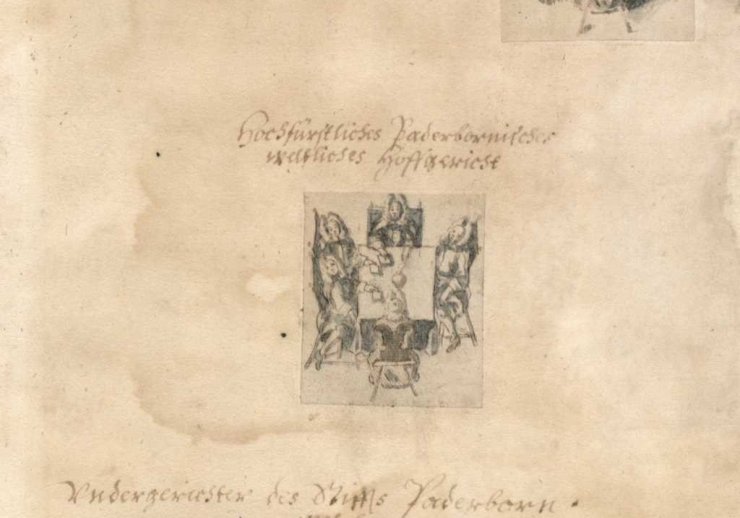 Hochfürstliches Paderbornisches
weltliches Hoffgericht
Vndergerichter des Stiffts Paderborn.